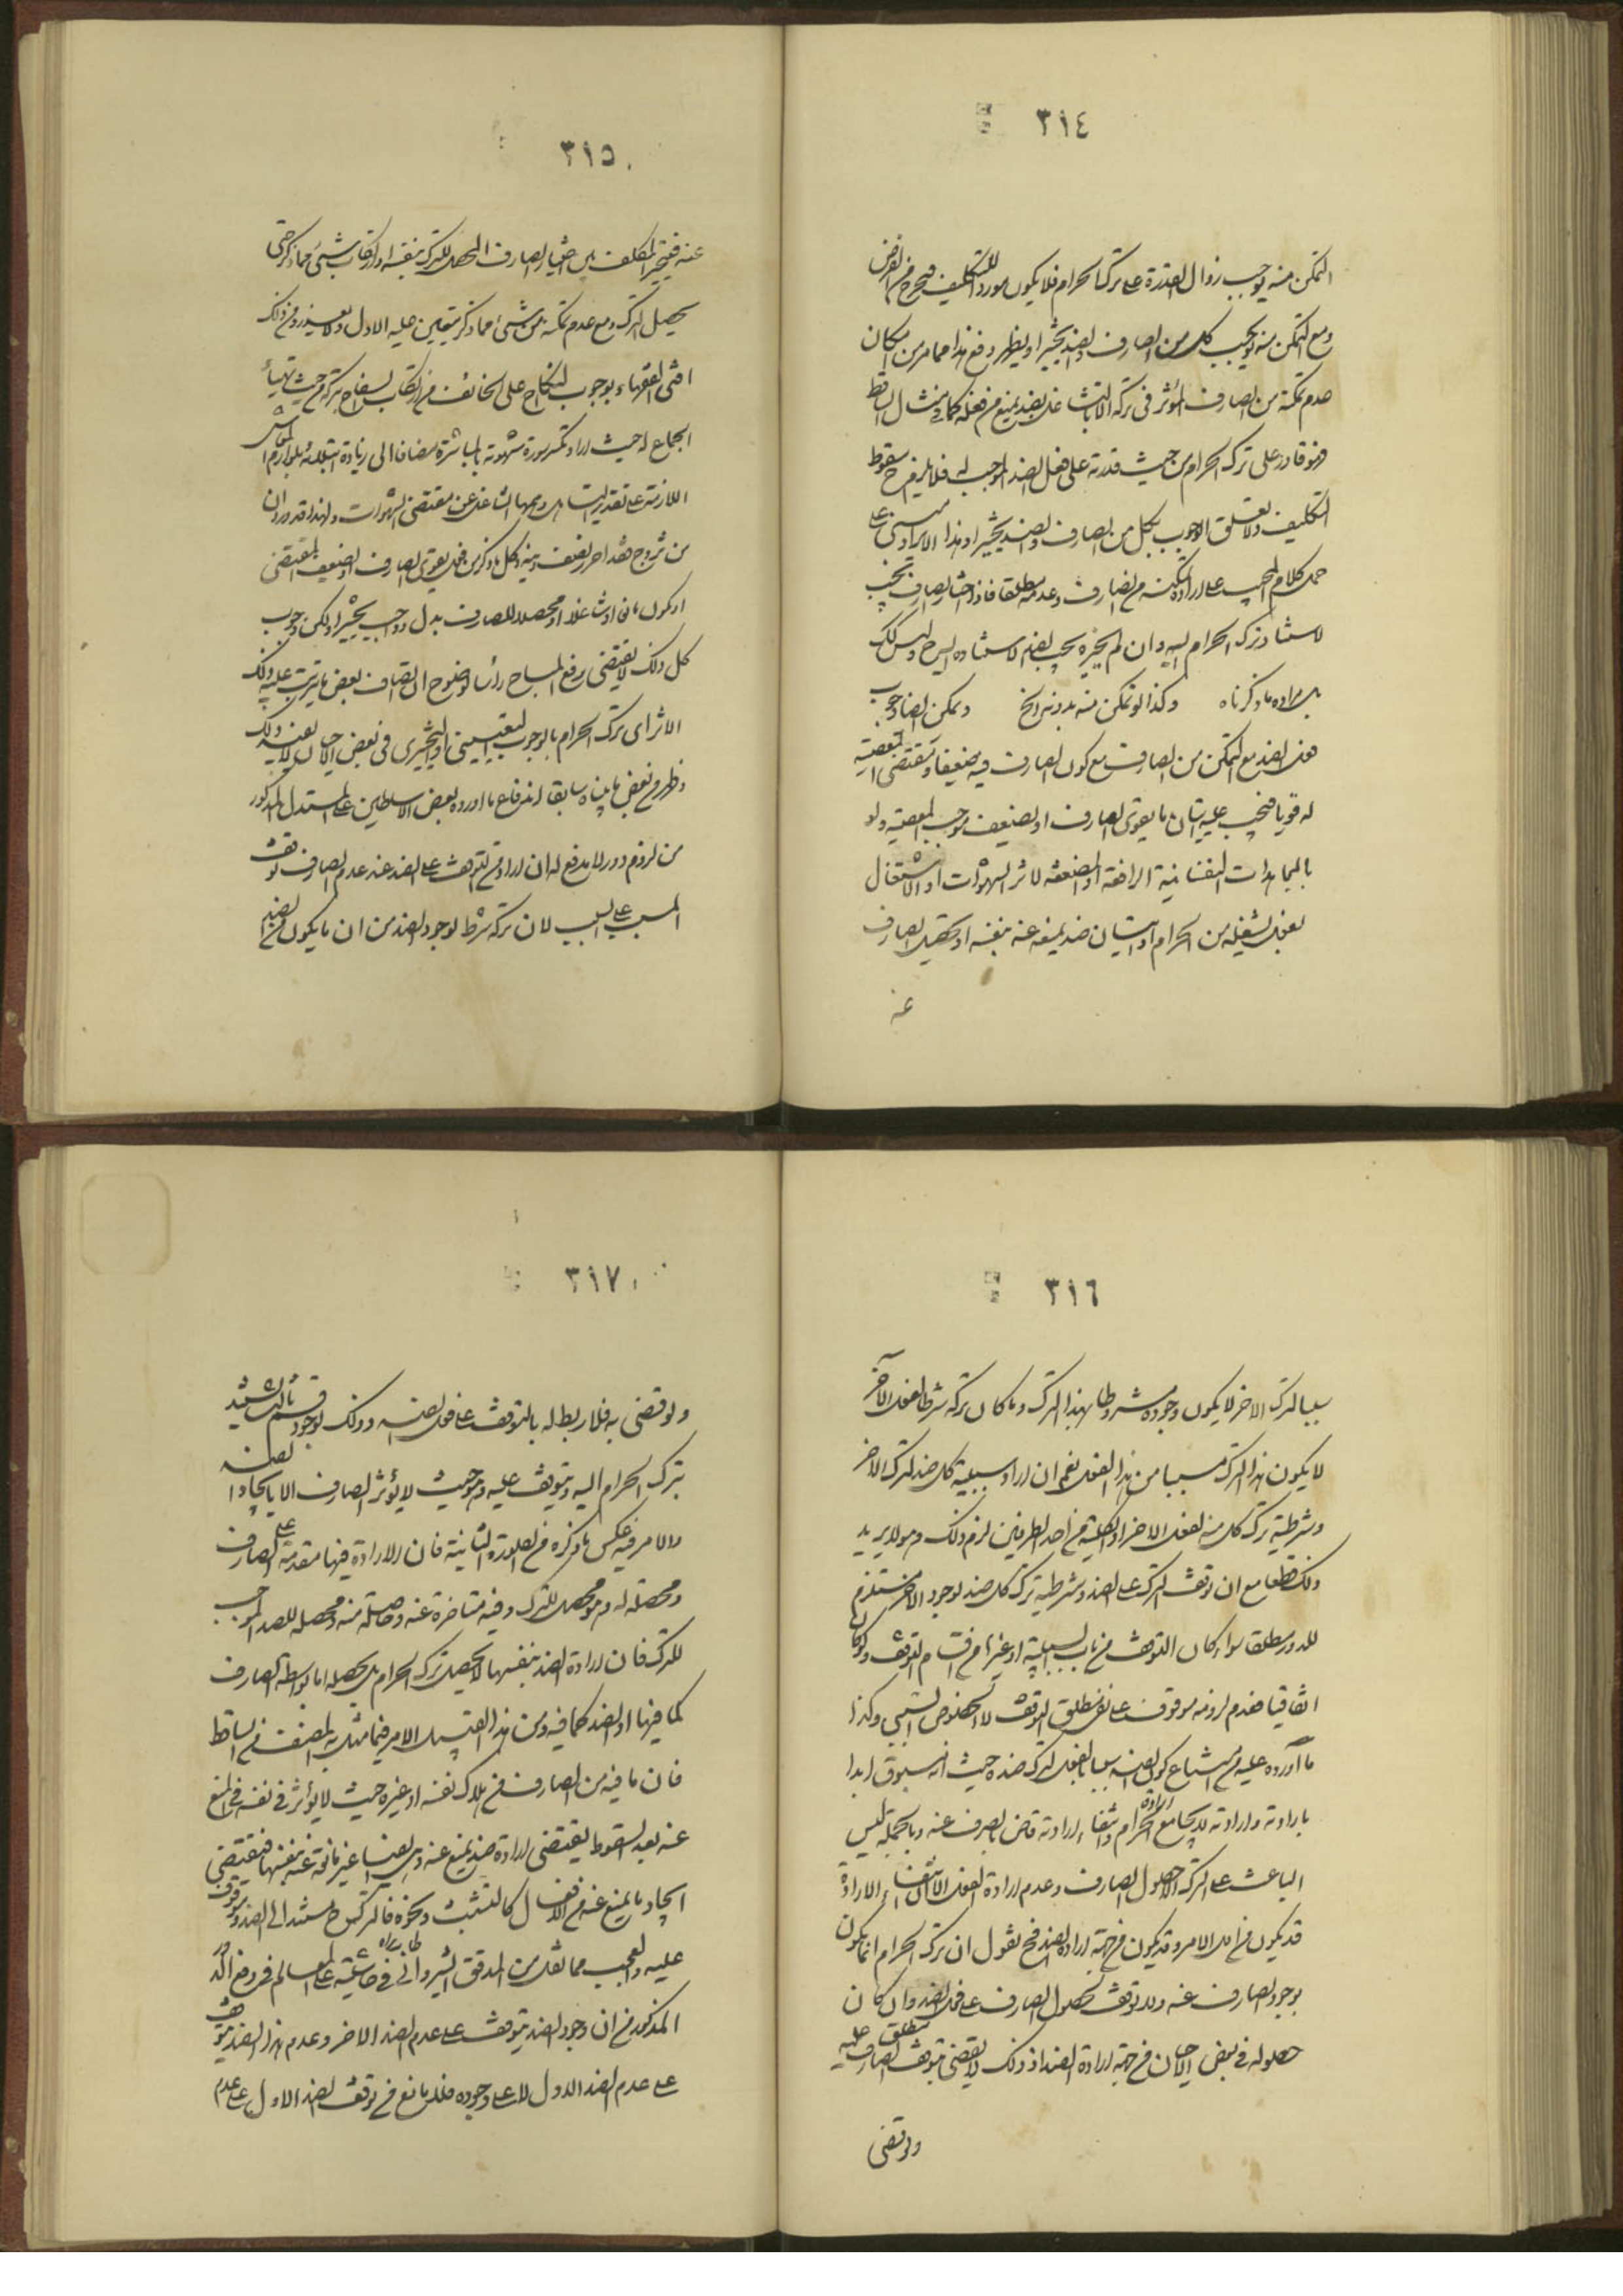 ٣١٤
التمكن منه يوجب زوال القدرة على ترك الحرام فلا يكون موردا للتكليف فيخرج عن الفرض
ومع التمكن منه يجب كل من الصارف والضد تخييرا ويظهر دفع هذا مما مر من امكان
عدم تمكنه من الصارف المؤثر في تركه الا بالتشاغل بضد يمنع من فعله كما في مثال الساقط
فهو قادر على ترك الحرام من حيث قدرته على فعل الضد الموجب له فلا يلزم ح سقوط
التكليف ولا تعلق الوجوب بكل من الصارف والضد تخييرا وهذا الايراد مبني على
حمل كلام المجيب على ارادة تمكنه من الصارف وعدمه مطلقا فاذا اختار الصارف يجب
لاستناد ترك الحرام اليه وان لم يختره يجب الضد لاستناده اليه ح وليس كك
بل مراده ما ذكرناه وكذا لو تمكن منه بدونه الخ ويمكن ايضا وجوب
فعل الضد مع التمكن من الصارف مع كون الصارف فيه ضعيفا ومقتضى المعصية
له قويا فيجب عليه اتيان ما يقوى الصارف او يضعف موجب المعصية ولو
بالمجاهدات النفسانية الرافعة او المضعفة لاثر الشهوات او الاشتغال
بفعل يشغله من الحرام او اتيان ضد يمنعه عنه بنفسه او تحصيل الصارف
عنه
٣١٥
عنه فيتخير المكلف بين اختيار الصارف المحصل للترك بنفسه او ارتكاب شيئ مما ذكر حتى
يحصل الترك ومع عدم تمكنه من شيئ مما ذكر يتعين عليه الاول ولا يعذر ومن ذلك
افتى الفقهاء بوجوب النكاح على الخائف من ارتكاب السفاح بتركه من حيث تهيأ
الجماع له حيث اراد وتكسر سورة شهوته بالمباشرة مضافا الى زيادة ابتلائه بلوازم المعاش
اللازمة على تقدير التاهل وبهمها الشاغل عن مقتضى الشهوات ولهذا قد ورد ان
من تزوج فقد احرز نصف دينه وكل ما ذكر من فعل يقوى الصارف او ضعيف المقتضى
او كون مانعا او شاغلا او محصلا للصارف بدل وواجب تخييرا ولكن وجوب
كل ذلك لا يقتضى رفع المباح رأسا لوضوح ان اتصاف بعض ما يترتب عليه ذلك
الاثر اى ترك الحرام بالوجوب التعييني او التخييري في بعض الاحيان لا يعينه ذلك
وظهر من بعض ما بيناه سابقا اندفاع ما اورده بعض الاساطين على المستدل المذكور
من لزوم دور لا مدفع له ان اراد من التوقف على الضد عند عدم الصارف توقف
المسبب على السبب لان تركه شرط لوجود الضد من ان ما يكون من الضد
٣١٦
سببا لترك الاخر لا يكون وجوده مشروطا بهذا الترك وما كان تركه شرطا لفعل الآخر
لا يكون هذا الترك مسببا من هذا الفعل نعم ان اراد سببية كل ضد لترك الاخر
وشرطية ترك كل منه لفعل الاخر او الكلية من احد الطرفين لزم ذلك وهو لا يريد
ذلك قطعا مع ان توقف الترك على الضد وشرطية ترك كل ضد لوجود الاخر مستلزم
للدور مطلقا سواء كان التوقف من باب السببية او غيرها من اقسام التوقف ولو كان
اتفاقيا فعدم لزومه موقوف على نفي مطلق التوقف لا خصوص السببي وكذا
ما اورده عليه من امتناع كون الضد سببا لفعل ترك ضده حيث انه مسبوق ابدا
بارادته وارادته لا يجامع ارادة الحرام وانتفاء ارادته قاض بالصرف عنه وبالجملة ليس
الباعث على الترك الا حصول الصارف وعدم ارادة الفعل الا ان انتفاء الارادة
قد يكون من اول الامر وقد يكون من جهة ارادة الضد فح نقول ان ترك الحرام انما يكون
بوجود الصارف عنه ولا توقف لحصول الصارف على فعل الضد وان كان
حصوله في بعض الاحيان من جهة ارادة الضد اذ ذلك لا يقتضى توقف مطلق الصارف عليه
ولو قضى
٣١٧
ولو قضى به فلا ربط له بالتوقف على فعل الضد وذلك لوجود قسم ثالث يستند
ترك الحرام اليه ويتوقف عليه وهو حيث لا يؤثر الصارف الا بايجاد الضد
والامر فيه عكس ما ذكره من الصورة الثانية فان الارادة فيها مقدمة على الصارف
ومحصلة له وهو محصل للترك وفيه متاخرة عنه وحاصلة منه ومحصله للضد الموجب
للترك فان ارادة الضد بنفسها لا يحصل ترك الحرام بل يحصله اما بواسطة الصارف
كما فيها او الضد كما فيه ومن هذا القبيل الامر فيما مثل به المصنف من الساقط
فان ما فيه من الصارف من هلاك نفسه او غيره حيث لا يؤثر في نفسه في المنع
عنه بعد السقوط يقتضى ارادة ضد يمنع عنه وهي ايضا غير مانعة عنه بنفسها فتقتضى
ايجاد ما يمنع عنه من الافعال كالتشبث ونحوه فالترك ح مستند الى الضد وموقوف
عليه والعجب مما نقل من المدقق الشيرواني طاب ثراه في حاشيته على المعالم في دفع الدور
المذكور من ان وجود الضد يتوقف على عدم الضد الاخر وعدم هذا الضد يتوقف
على عدم الضد الاول لا على وجوده فلا مانع من توقف الضد الاول على عدم